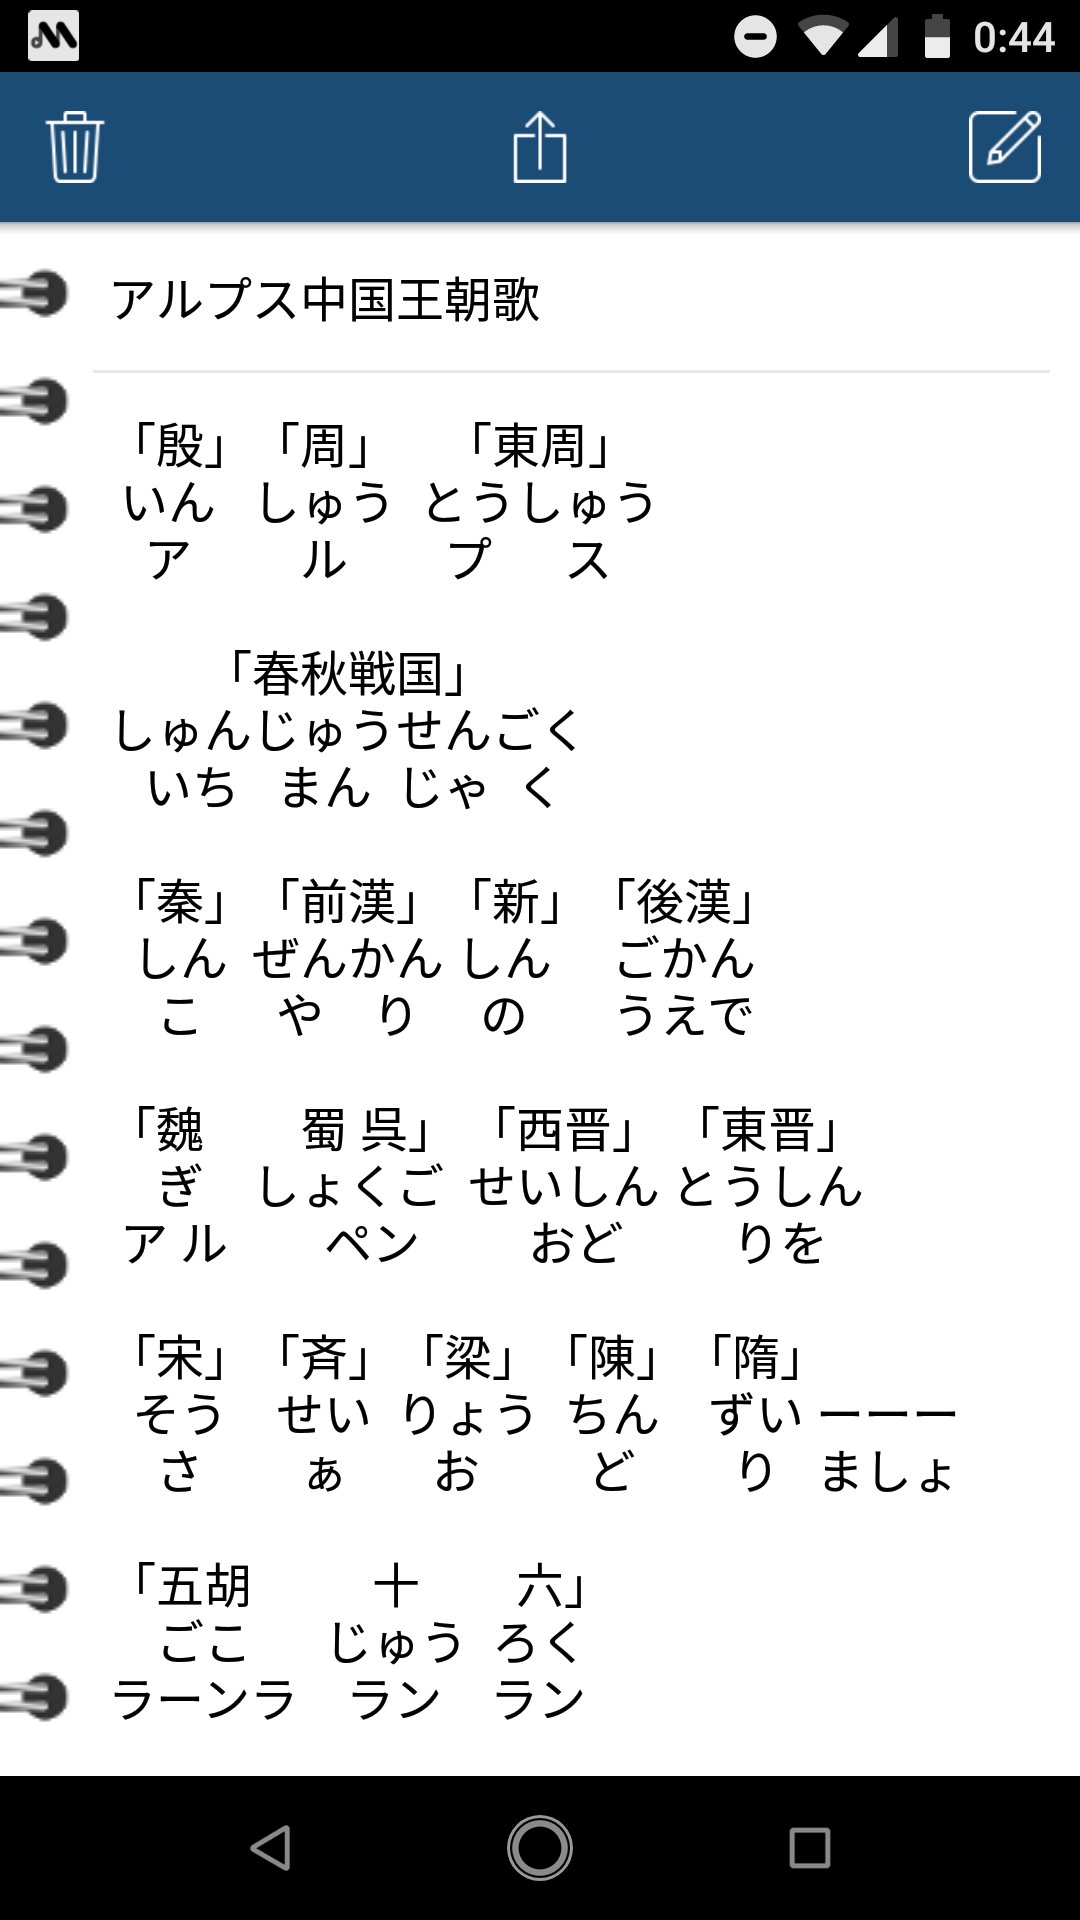 0:44
アルプス中国王朝歌
「殷」「周」 「東周」
いん しゅう とうしゅう
ア ル プ ス
「春秋戦国」
しゅんじゅうせんごく
いち まん じゃ く
「秦」「前漢」「新」「後漢」
しん ぜんかん しん ごかん
こ や り の うえで
「魏 蜀 呉」「西晋」「東晋」
ぎ しょくご せいしん とうしん
ア ル ペン おど りを
「宋」「斉」「梁」「陳」「隋」
そう せい りょう ちん ずい ーーー
さ ぁ お ど り ましょ
「五胡 十 六」
ごこ じゅう ろく
ラーンラ ラン ラン